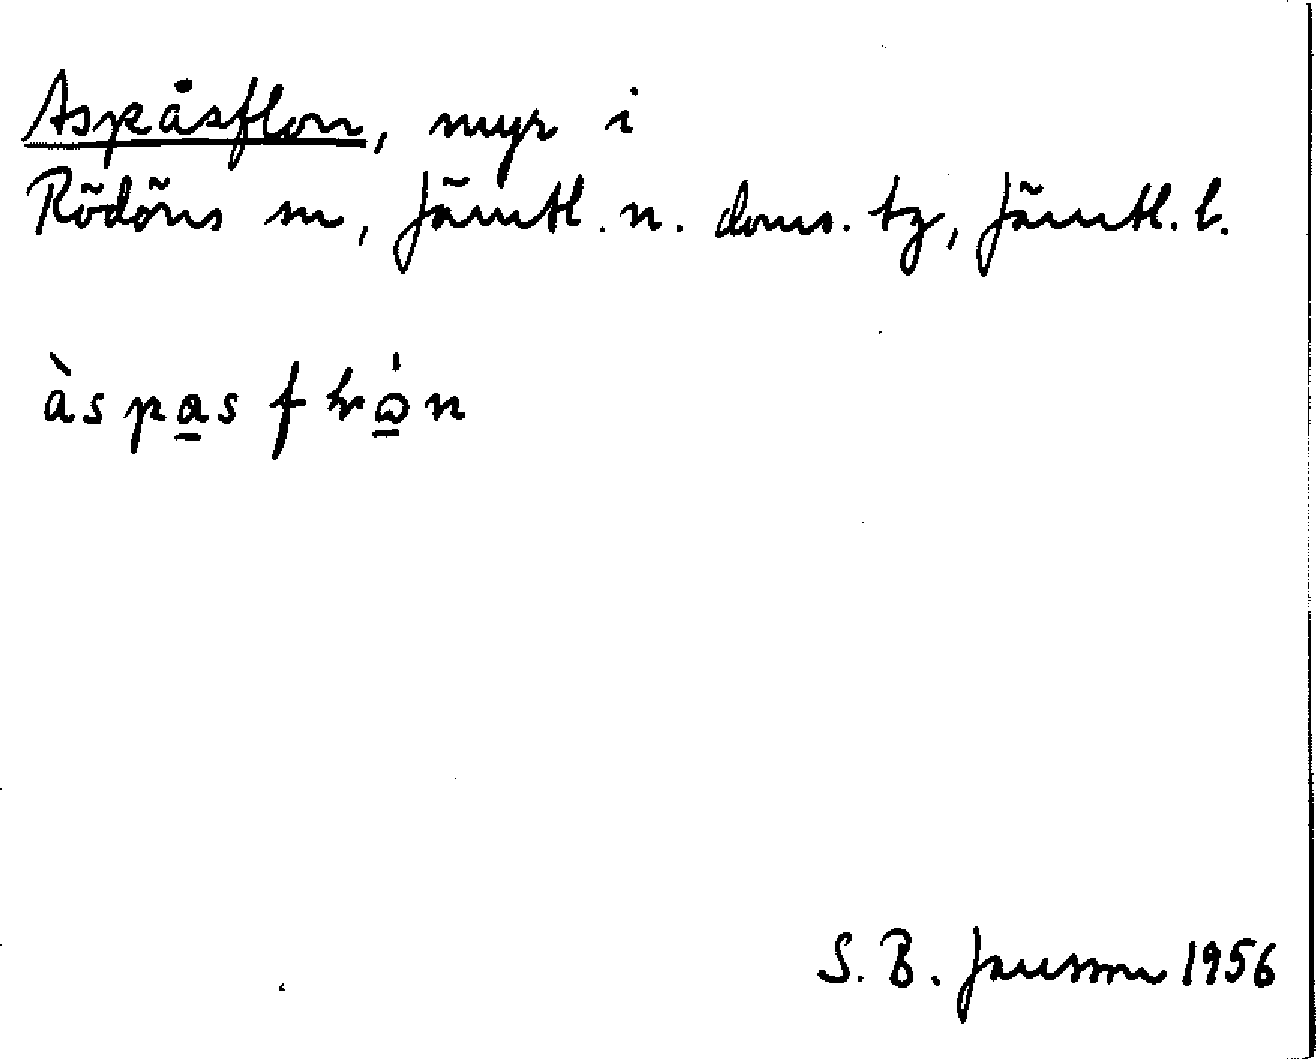 Aspåsflon, myr i
Rödöns sn, Jämtl. n. doms. tg, Jämtl. l.
S. B. Jansson 1956